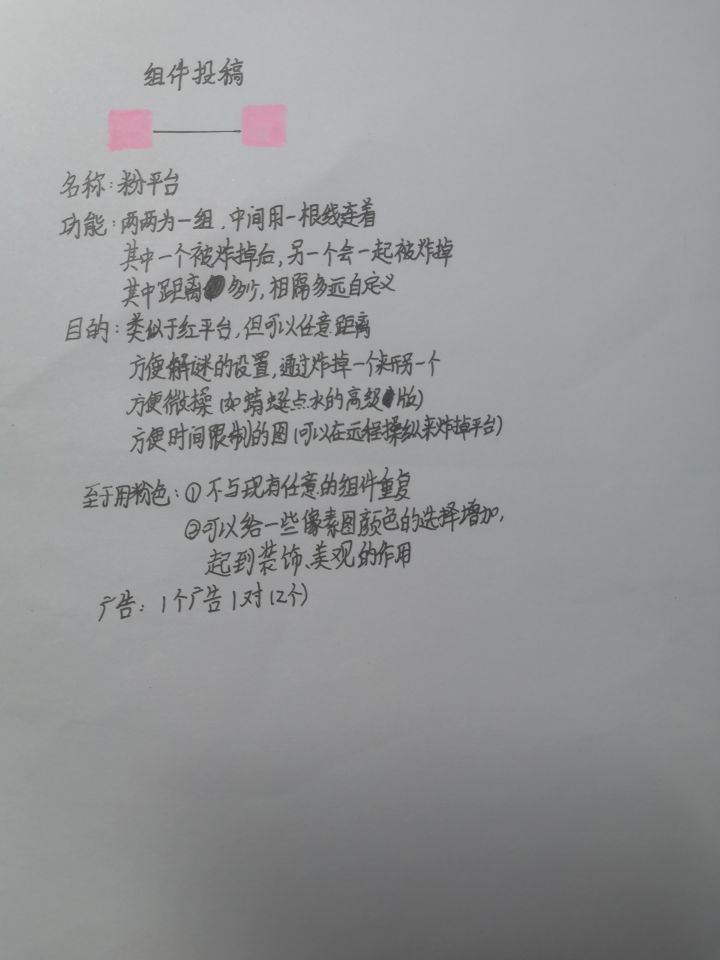 组件投稿
名称：粉平台
功能：两两为一组，中间用一根线连着
其中一个被炸掉后，另一个会一起被炸掉
其中距离多少，相隔多远自定义
目的：类似于红平台，但可以任意距离
方便解谜的设置，通过炸掉一个来拆另一个
方便微操（如蜻蜓点水的高级版）
方便时间限制的图（可以在远程操纵来炸掉平台）
至于用粉色：①不与现有任意的组件重复
②可以给一些像素图颜色的选择增加，
起到装饰、美观的作用
广告：1个广告1对（2个）